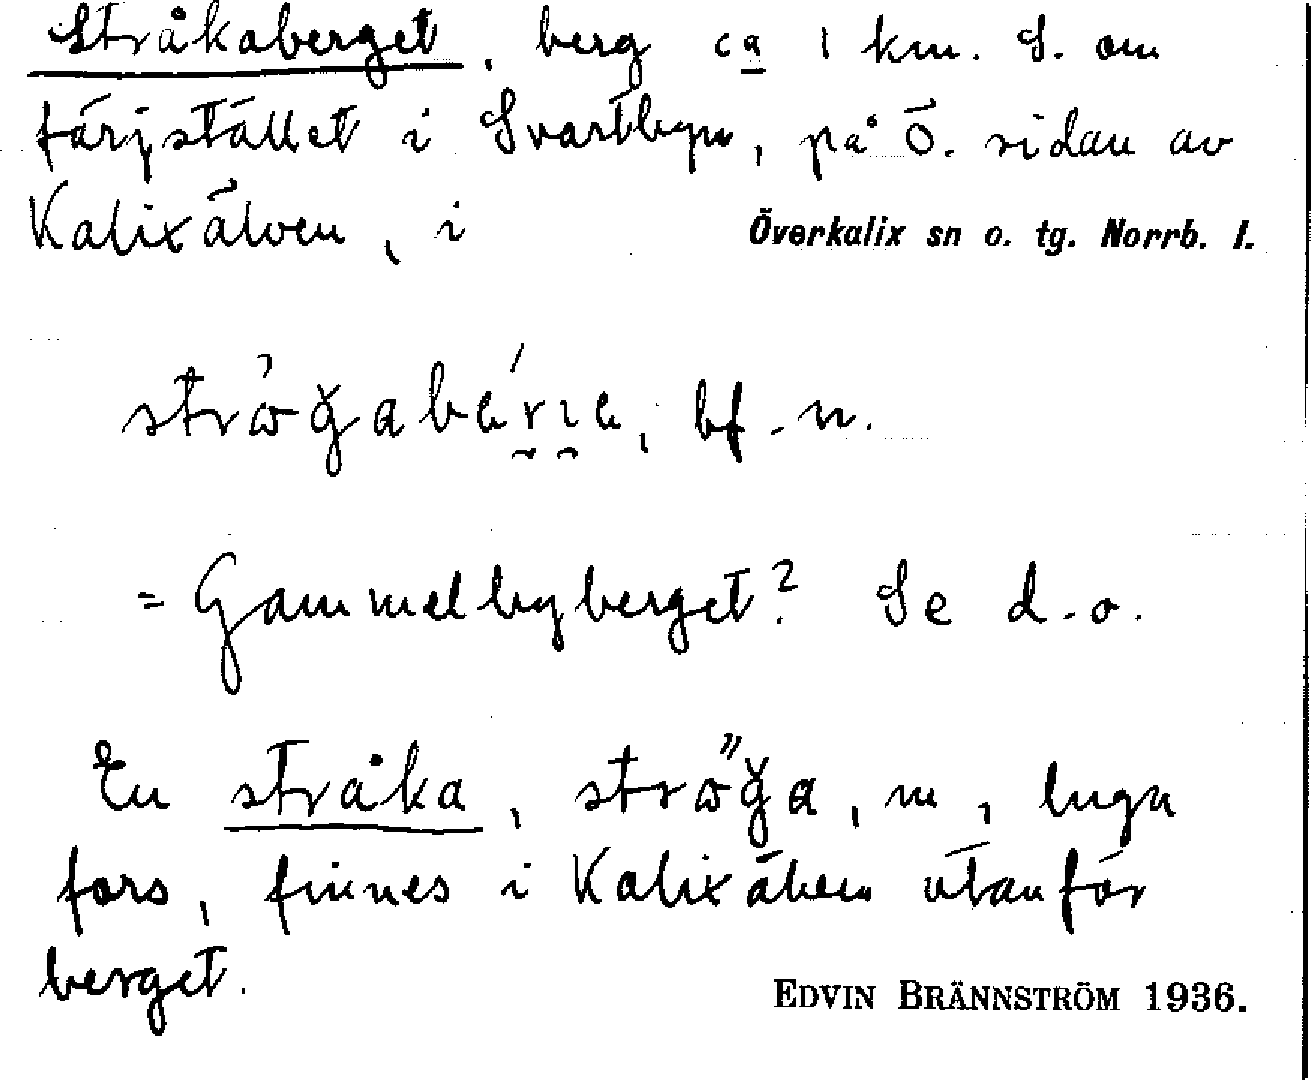 Stråkaberget, berg ca 1 km. S. om
färjstället i Svartbyn, på Ö. sidan av
Kalixälven, i Överkalix sn o. tg. Norrb. l.
bf. n.
= Gammelbyberget? Se d.o.
En stråka, m, lugn
fors, finnes i Kalixälven utanför
berget.
EDVIN BRÄNNSTRÖM 1936.